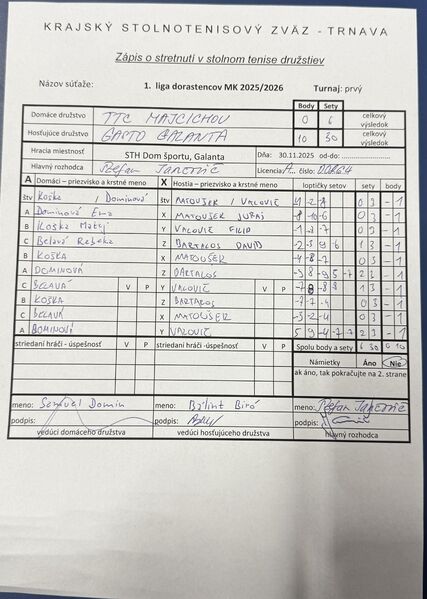 KRAJSKÝ STOLNOTENISOVÝ ZVÄZ - TRNAVA
Zápis o stretnutí v stolnom tenise družstiev
Názov súťaže: 1. liga dorastencov MK 2025/2026 Turnaj: prvý
Body Sety
Domáce družstvo TTC MAJCICHOV 0 6 celkový výsledok
Hosťujúce družstvo GASTO GALANTA 10 30 celkový výsledok
Hracia miestnosť STH Dom športu, Galanta Dňa: 30.11.2025 od-do:
Hlavný rozhodca Štefan Jančovič Licencia A číslo:
A Domáci – priezvisko a krstné meno X Hostia – priezvisko a krstné meno loptičky setov sety body
štv Koška / Dominová štv MATOUŠEK / VALOVIČ 0 3 - 1
A Dominová Ema X MATOUŠEK JURAJ -8 -10 -6 0 3 - 1
B Koška Matej Y VALOVIČ FILIP 0 3 - 1
C Belavá Rebeka Z BARTALOS DAVID 1 3 - 1
B KOŠKA X MATOUŠEK -4 -8 -7 0 3 - 1
A DOMINOVÁ Z BARTALOS -3 8 -9 5 -7 2 3 - 1
C BELAVÁ V P Y VALOVIČ V P 1 3 - 1
B KOŠKA Z BARTALOS 0 3 - 1
C BELAVÁ X MATOUŠEK -3 -2 -4 0 3 - 1
A DOMINOVÁ Y VALOVIČ 2 3 - 1
striedaní hráči - úspešnosť V P striedaní hráči - úspešnosť V P Spolu body a sety 6 30 0 10
Námietky Áno Nie
ak áno, tak pokračujte na 2. strane
meno: Samuel Domin meno: Bálint Biró meno: Štefan Jančovič
podpis: podpis: podpis:
vedúci domáceho družstva vedúci hosťujúceho družstva hlavný rozhodca